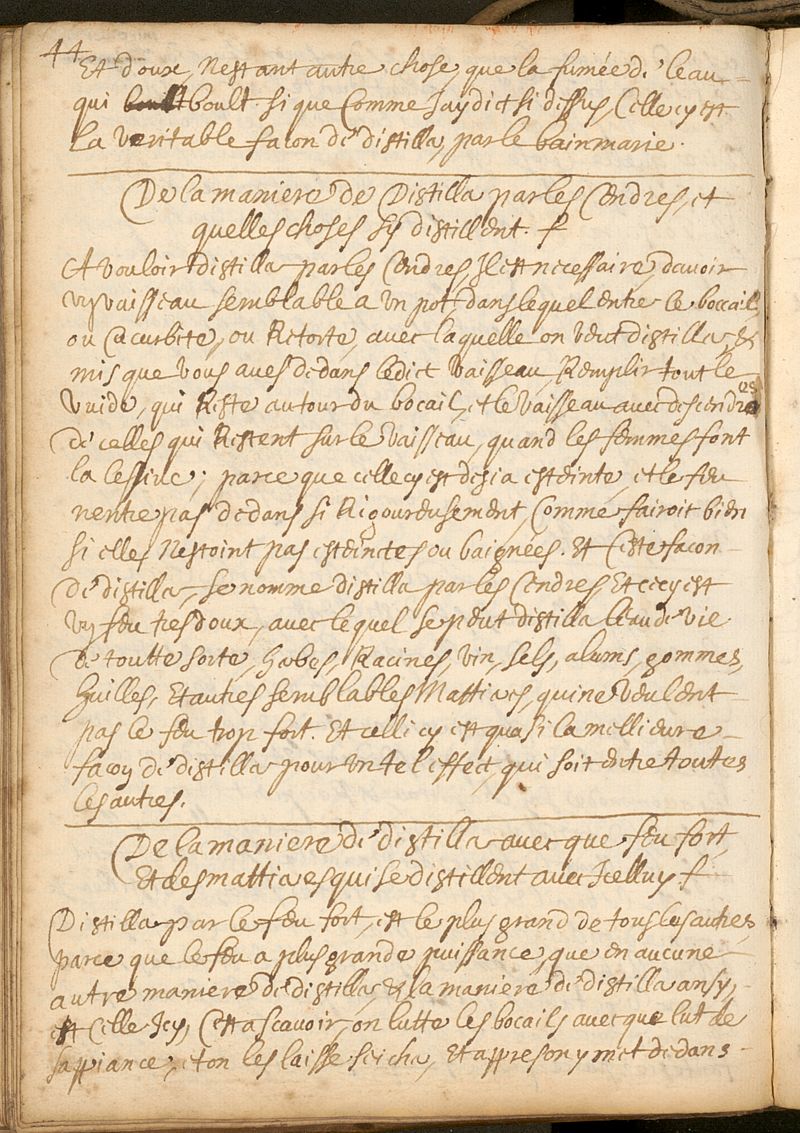 44
Et doux, Nestant autre chose, que la fumée de leau
qui boult boult. si que Comme Jay dict si dessus, Celle cy est
La veritable facon de distiller, par le bainmarie.
De la maniere de Distiller par les Cendres, et
quelles choses sy distillent.
A vouloir distiller par les Cendres Il est necessaire, davoir
un vaisseau semblable a un pot, dans lequel entre le boccail,
ou Cucurbite, ou Retorte, avec laquelle on veut distiller, &
mis que vous aves dedans ledict vaisseau, Remplir tout le
vuide, qui Reste autour du bocail, et le vaisseau avec des cendres
de celles qui Restent sur le vaisseau, quand les femmes font
la lessive; parce que celle cy est desia esteinte, et le feu
nentre pas dedans si Rigoureusement, Comme fairoit bien
si elles Nestoint pas esteinctes ou baignées. Et Ceste facon
de distiller, se nomme distiller par les Cendres, Et cecy est
un feu tres doux, avec lequel se peut distiller Leau de vie
de toutte sorte, herbes, Racines, vin, sels, alums, gommes,
huilles, Et autres semblables Mattieres, qui ne veulent
pas le feu trop fort. Et celle cy est quasi la mellieure
facon de distiller pour un tel effect, qui soit entre toutes
les autres.
De la maniere de distiller avecque feu fort,
Et des mattieres qui se distillent avec Icelluy
Distiller par le feu fort, est le plus grand de tous les autres,
parce que le feu a plus grande puissance, que en aucune
autre maniere de distiller, & la maniere de distiller ansy,
est Celle Icy, C'est a scavoir, on lutte les bocails avecque lut de
sappiance, et on les laisse seicher, Et appres on y met dedans